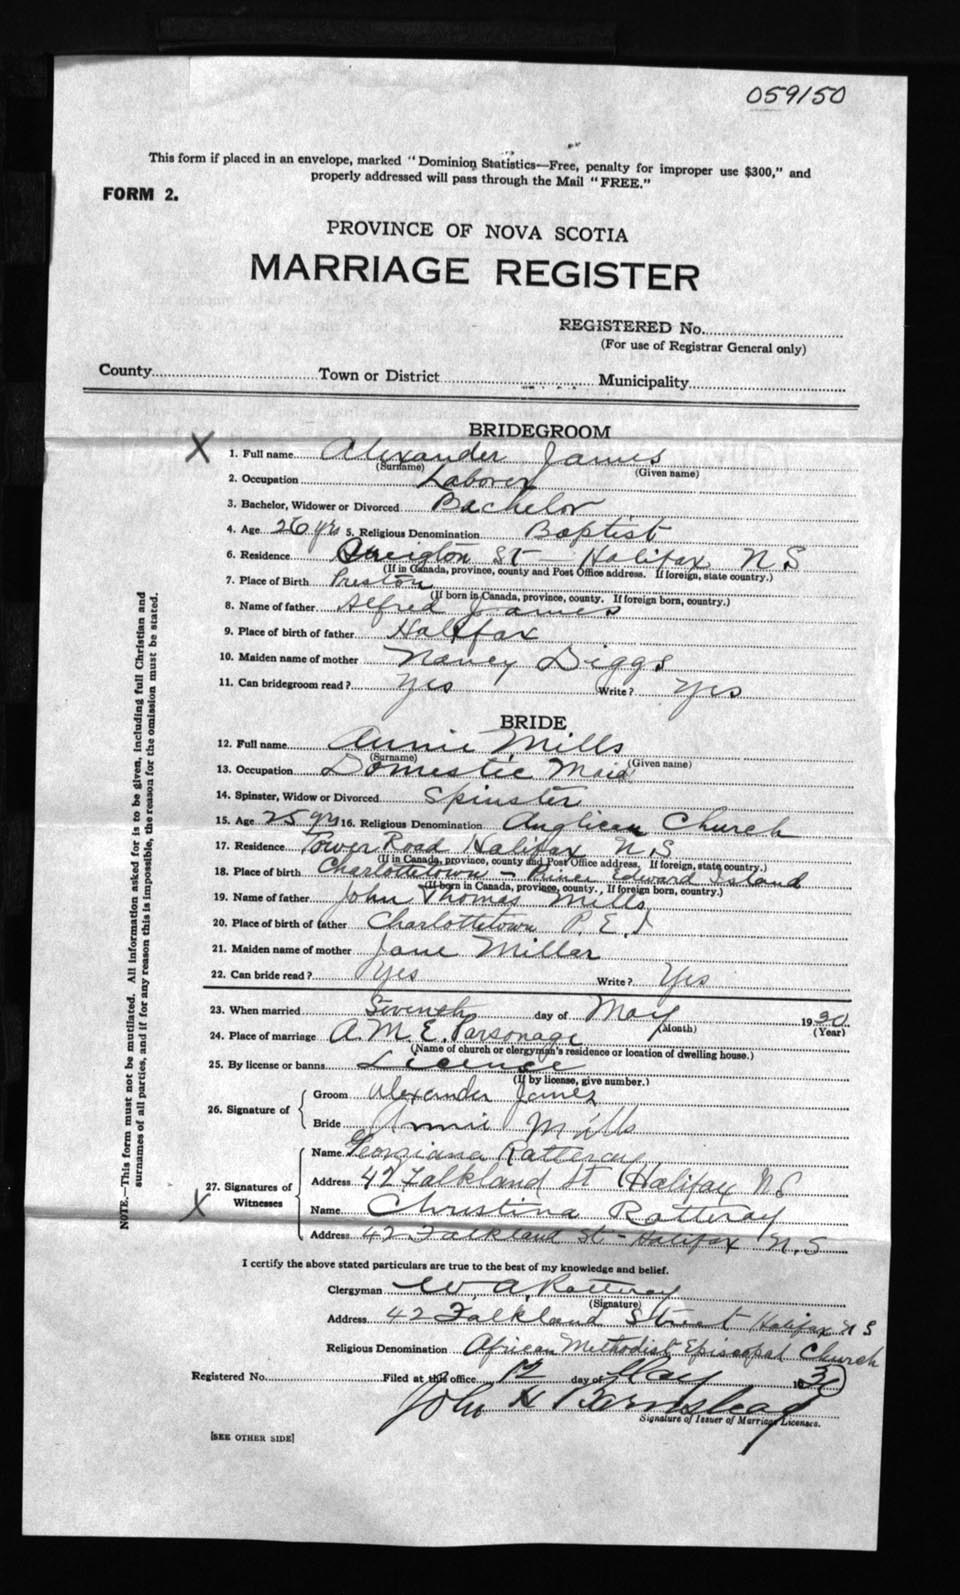 059150
This form if placed in an envelope, marked "Dominion Statistics—Free, penalty for improper use $300," and
properly addressed will pass through the Mail "FREE."
FORM 2.
PROVINCE OF NOVA SCOTIA
MARRIAGE REGISTER
REGISTERED No.
(For use of Registrar General only)
County Town or District Municipality
BRIDEGROOM
X 1. Full name Alexander James
(Surname) (Given name)
2. Occupation Laborer
3. Bachelor, Widower or Divorced Bachelor
4. Age 26 yrs 5. Religious Denomination Baptist
6. Residence Creigton St Halifax N S
(If in Canada, province, county and Post Office address. If foreign, state country.)
7. Place of Birth Preston
(If born in Canada, province, county. If foreign born, country.)
8. Name of father Alfred James
9. Place of birth of father Halifax
10. Maiden name of mother Nancy Diggs
11. Can bridegroom read? Yes Write? Yes
BRIDE
12. Full name Annie Mills
(Surname) (Given name)
13. Occupation Domestic Maid
14. Spinster, Widow or Divorced Spinster
15. Age 25 yrs 16. Religious Denomination Anglican Church
17. Residence Tower Road Halifax N.S
(If in Canada, province, county and Post Office address. If foreign, state country.)
18. Place of birth Charlottetown - Prince Edward Island
(If born in Canada, province, county. If foreign born, country.)
19. Name of father John Thomas Mills
20. Place of birth of father Charlottetown P.E.I
21. Maiden name of mother Jane Millar
22. Can bride read? Yes Write? Yes
23. When married Seventh day of May 1930
(Month) (Year)
24. Place of marriage A.M.E. Parsonage
(Name of church or clergyman's residence or location of dwelling house.)
25. By license or banns Licence
(If by license, give number.)
26. Signature of
Groom Alexander James
Bride Annie Mills
27. Signatures of Witnesses
Name Georgiana Ratteray
Address 42 Falkland St Halifax NS
X Name Christina Ratteray
Address 42 Falkland St - Halifax N.S
I certify the above stated particulars are true to the best of my knowledge and belief.
Clergyman W. A. Ratteray
(Signature)
Address 42 Falkland Street Halifax N S
Religious Denomination African Methodist Episcopal Church
Registered No. Filed at this office 12 day of May 1930
John H Barnstead
Signature of Issuer of Marriage Licenses.
[SEE OTHER SIDE]
NOTE.—This form must not be mutilated. All information asked for is to be given, including full Christian and
surnames of all parties, and if for any reason this is impossible, the reason for the omission must be stated.